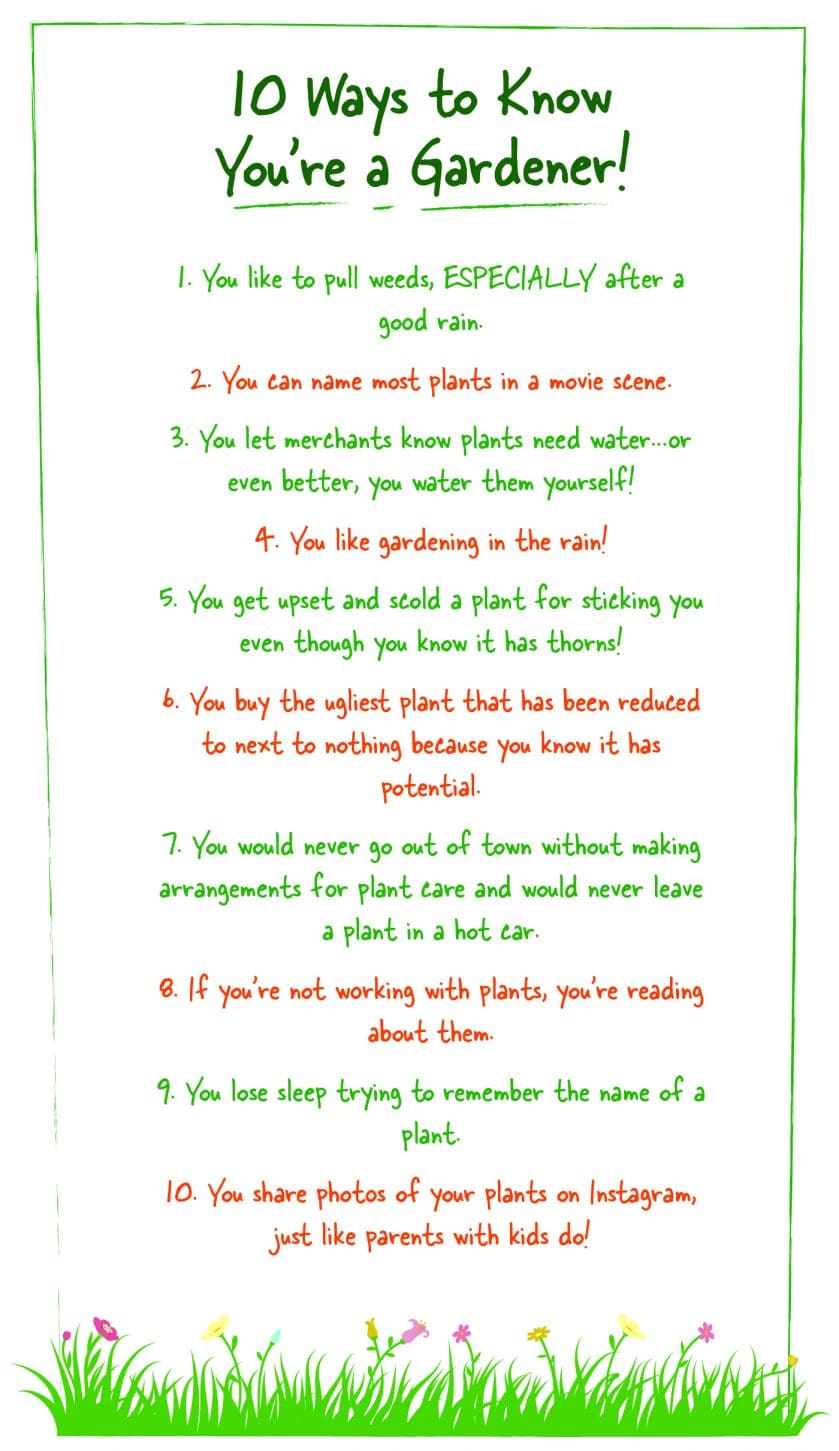 10 Ways to Know
You're a Gardener!
1. You like to pull weeds, ESPECIALLY after a
good rain.
2. You can name most plants in a movie scene.
3. You let merchants know plants need water...or
even better, you water them yourself!
4. You like gardening in the rain!
5. You get upset and scold a plant for sticking you
even though you know it has thorns!
6. You buy the ugliest plant that has been reduced
to next to nothing because you know it has
potential.
7. You would never go out of town without making
arrangements for plant care and would never leave
a plant in a hot car.
8. If you're not working with plants, you're reading
about them.
9. You lose sleep trying to remember the name of a
plant.
10. You share photos of your plants on Instagram,
just like parents with kids do!